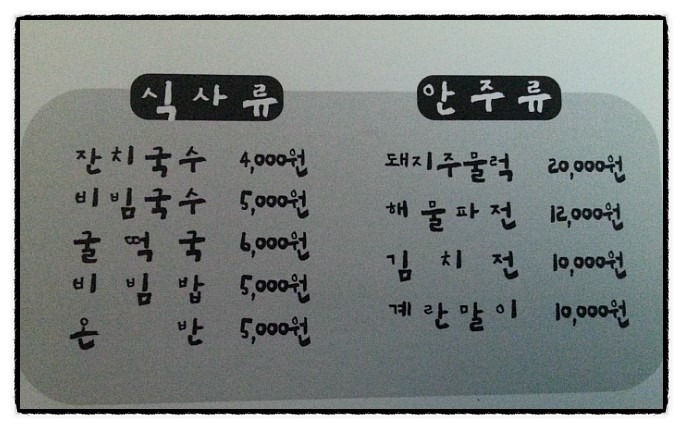 식사류
잔치국수 4,000원
비빔국수 5,000원
굴떡국 6,000원
비빔밥 5,000원
온반 5,000원
안주류
돼지주물럭 20,000원
해물파전 12,000원
김치전 10,000원
계란말이 10,000원